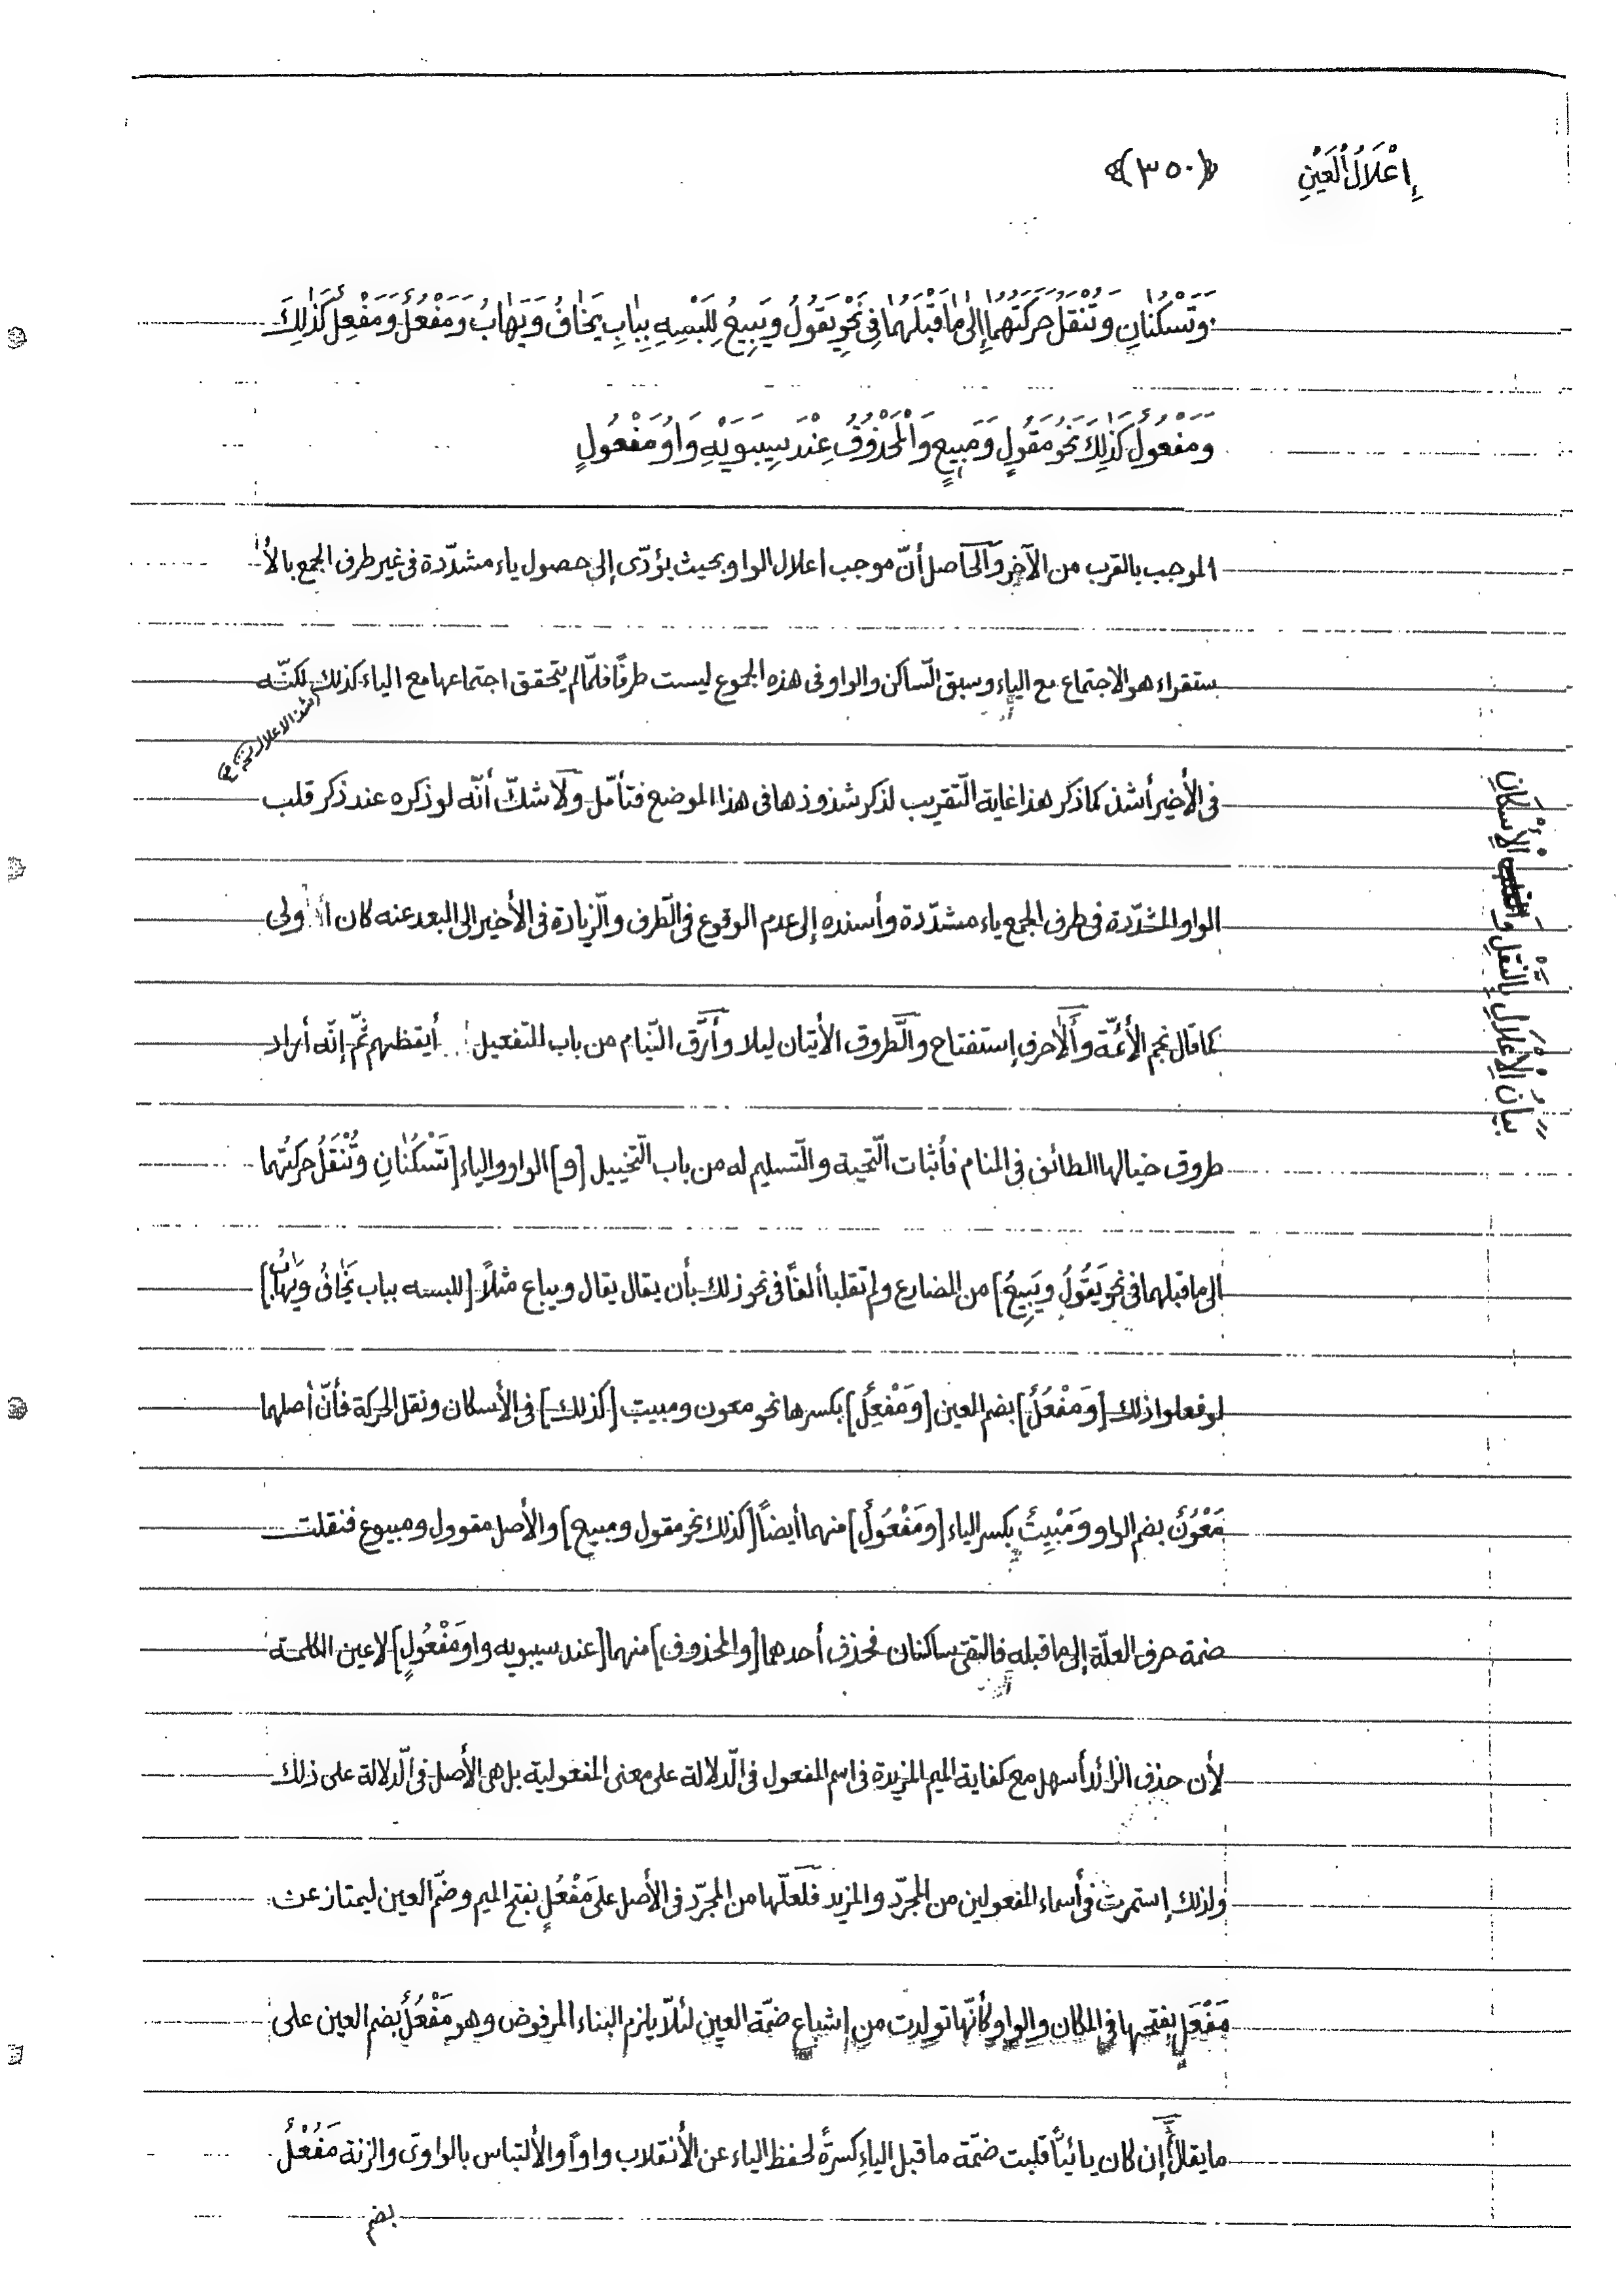 إِعْلَالُ الْعَيْنِ ﴿٣٥٠﴾
وَتَسْكُنَانِ وَتُنْقَلُ حَرَكَتُهُمَا إِلَىٰ مَا قَبْلَهُمَا فِي نَحْوِ يَقُولُ وَيَبِيعُ لِلَبْسِهِ بِبَابِ يَخَافُ وَيَهَابُ وَمَفْعُلٌ وَمَفْعِلٌ كَذٰلِكَ
وَمَفْعُولٌ كَذٰلِكَ نَحْوُ مَقُولٍ وَمَبِيعٍ وَالْمَحْذُوفُ عِنْدَ سِيبَوَيْهِ وَاوُ مَفْعُولٍ
الموجب بالقرب من الآخر وَالحَاصل أنّ موجب اعلال الواو بحيث يؤدّى إلى حصول ياء مشدّدة فى غير طرف الجمع بالأ
ستقراء هو الاجتماع مع الياء وسبق السّاكن والواو فى هذه الجموع ليست طرفًا فلمّا لم يتحقق اجتماعها مع الياء كذلك لكنّه
شذ الاعلال
فى الأخير أشذ كما ذكر هذا غاية التّقريب لذكر شذوذها فى هذا الموضع فتأمّل وَلَا شكّ أنّه لو ذكره عند ذكر قلب
الواو المشدّدة فى طرف الجمع ياء مشدّدة وأسنده إلى عدم الوقوع فى الطّرف والزّيادة فى الأخير الى البعد عنه كان أولى
كما قال نجم الأئمّة وَألَا حرف إستفتاح وَالطّروق الأتيان ليلا وَأرّق النّيام من باب التّفعيل أيقظهم ثمّ إنّه أراد
طروق خيالها الطائف فى المنام فأثبات التّحية والتّسليم له من باب التّخييل [و] الواو والياء [تَسْكُنَانِ وَتُنْقَلُ حركتُهما
الى ما قبلهما فى نحوِ يَقُولُ ويَبِيعُ] من المضارع ولم تقلبا ألفًا فى نحو ذلك بأن يقال يقال ويباع مثلًا [للبسه بباب يَخَافُ ويَهَابُ]
لو فعلوا ذلك [وَمَفْعُلٌ] بضم العين [وَمَفْعِلٌ] بكسرها نحو معون ومبيت [كذلك] فى الأسكان ونقل الحركة فأنّ أصلهما
مَعْوُنٌ بضم الواو وَمَبْيِتٌ بكسر الياء [ومَفْعُولٌ] منهما أيضاً [كذلك نحو مقول ومبيع] والأصل مقوول ومبيوع فنقلت
ضمة حرف العلّة إلى ما قبله فالتقى ساكنان فحذف أحدهما [والمحذوف] منهما [عند سيبويه واو مَفْعُولٍ] لا عين الكلمة
لأن حذف الزائد أسهل مع كفاية الميم المزيدة فى اسم المفعول فى الدّلالة على معنى المفعولية بل هى الأصل فى الدّلالة على ذلك
ولذلك إستمرت فى أسماء المفعولين من المجرّد والمزيد فَلَعلّها من المجرّد فى الأصل على مَفْعُلٍ بفتح الميم وضمّ العين ليمتاز عن
مَفْعَلٍ بفتحها فى المكان والواو كأنّها تولدت من إشباع ضمّة العين لئلّا يلزم البناء المرفوض وهو مَفْعُلٌ بضم العين على
ما يقال ثمّ إن كان يائيّاً قلبت ضمّة ما قبل الياءِ كسرةً لحفظ الياء عن الأنقلاب واواً والألتباس بالواوىّ والزنة مَفُعْلٌ
بضم
بيَانُ الْإِعْلَالِ بِالنَّقلِ وَ الْإِسْكَانِ